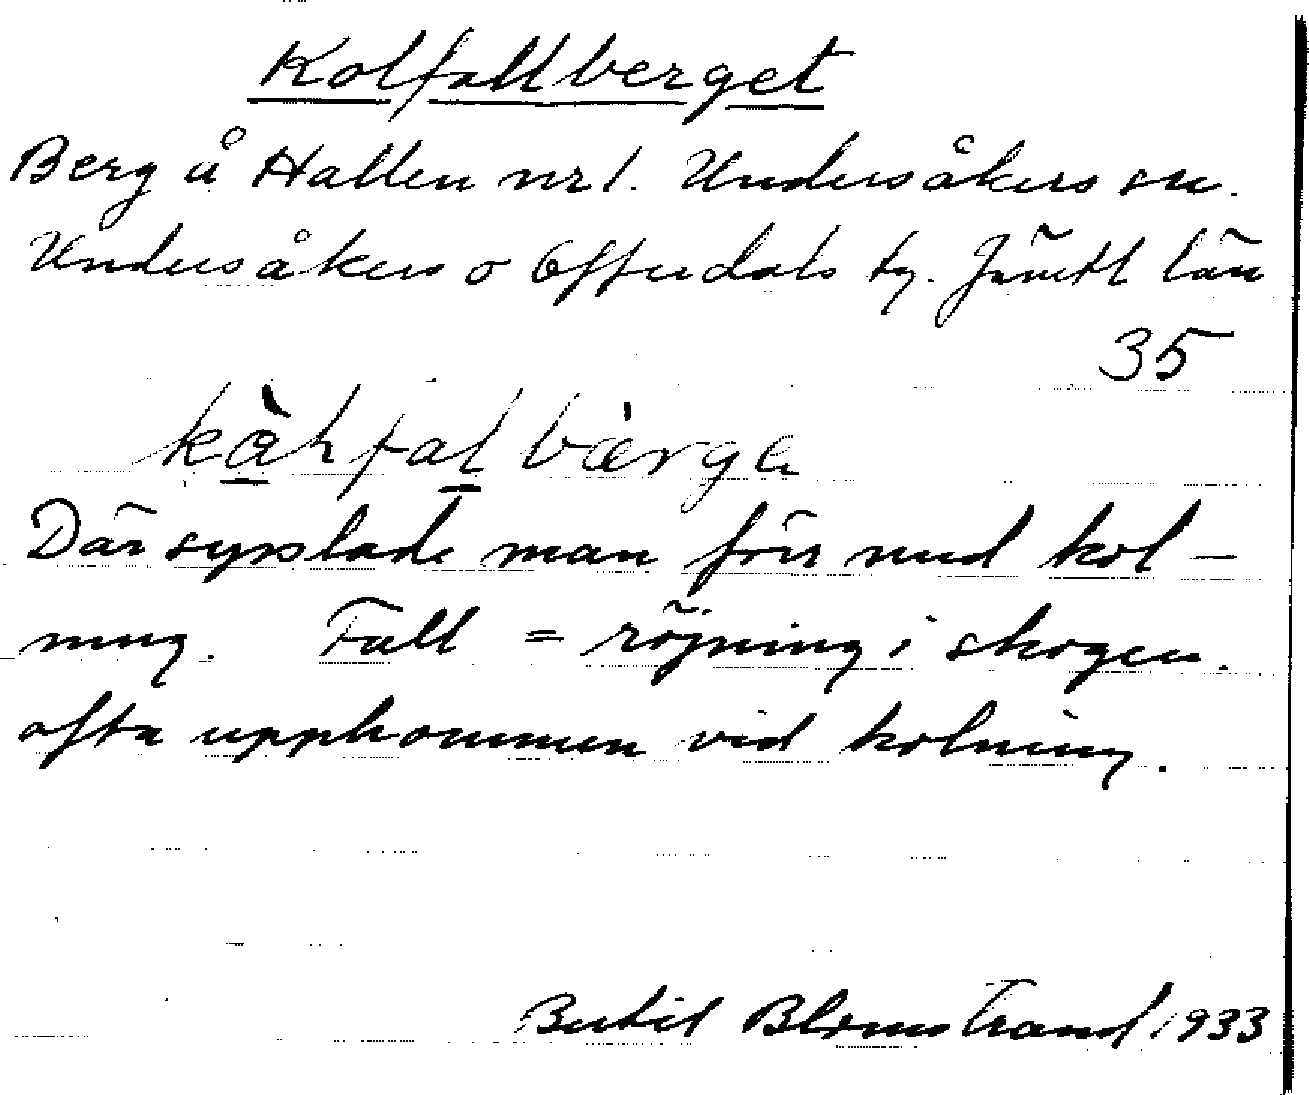 Kolfallberget
Berg å Hallen nr 1. Undersåkers sn.
Undersåkers o Offerdals tg. Jämtl län
35
Där sysslade man förr med kol-
ning. Fall = röjning i skogen.
ofta uppkommen vid kolning.
Bertil Blomstrand 1933